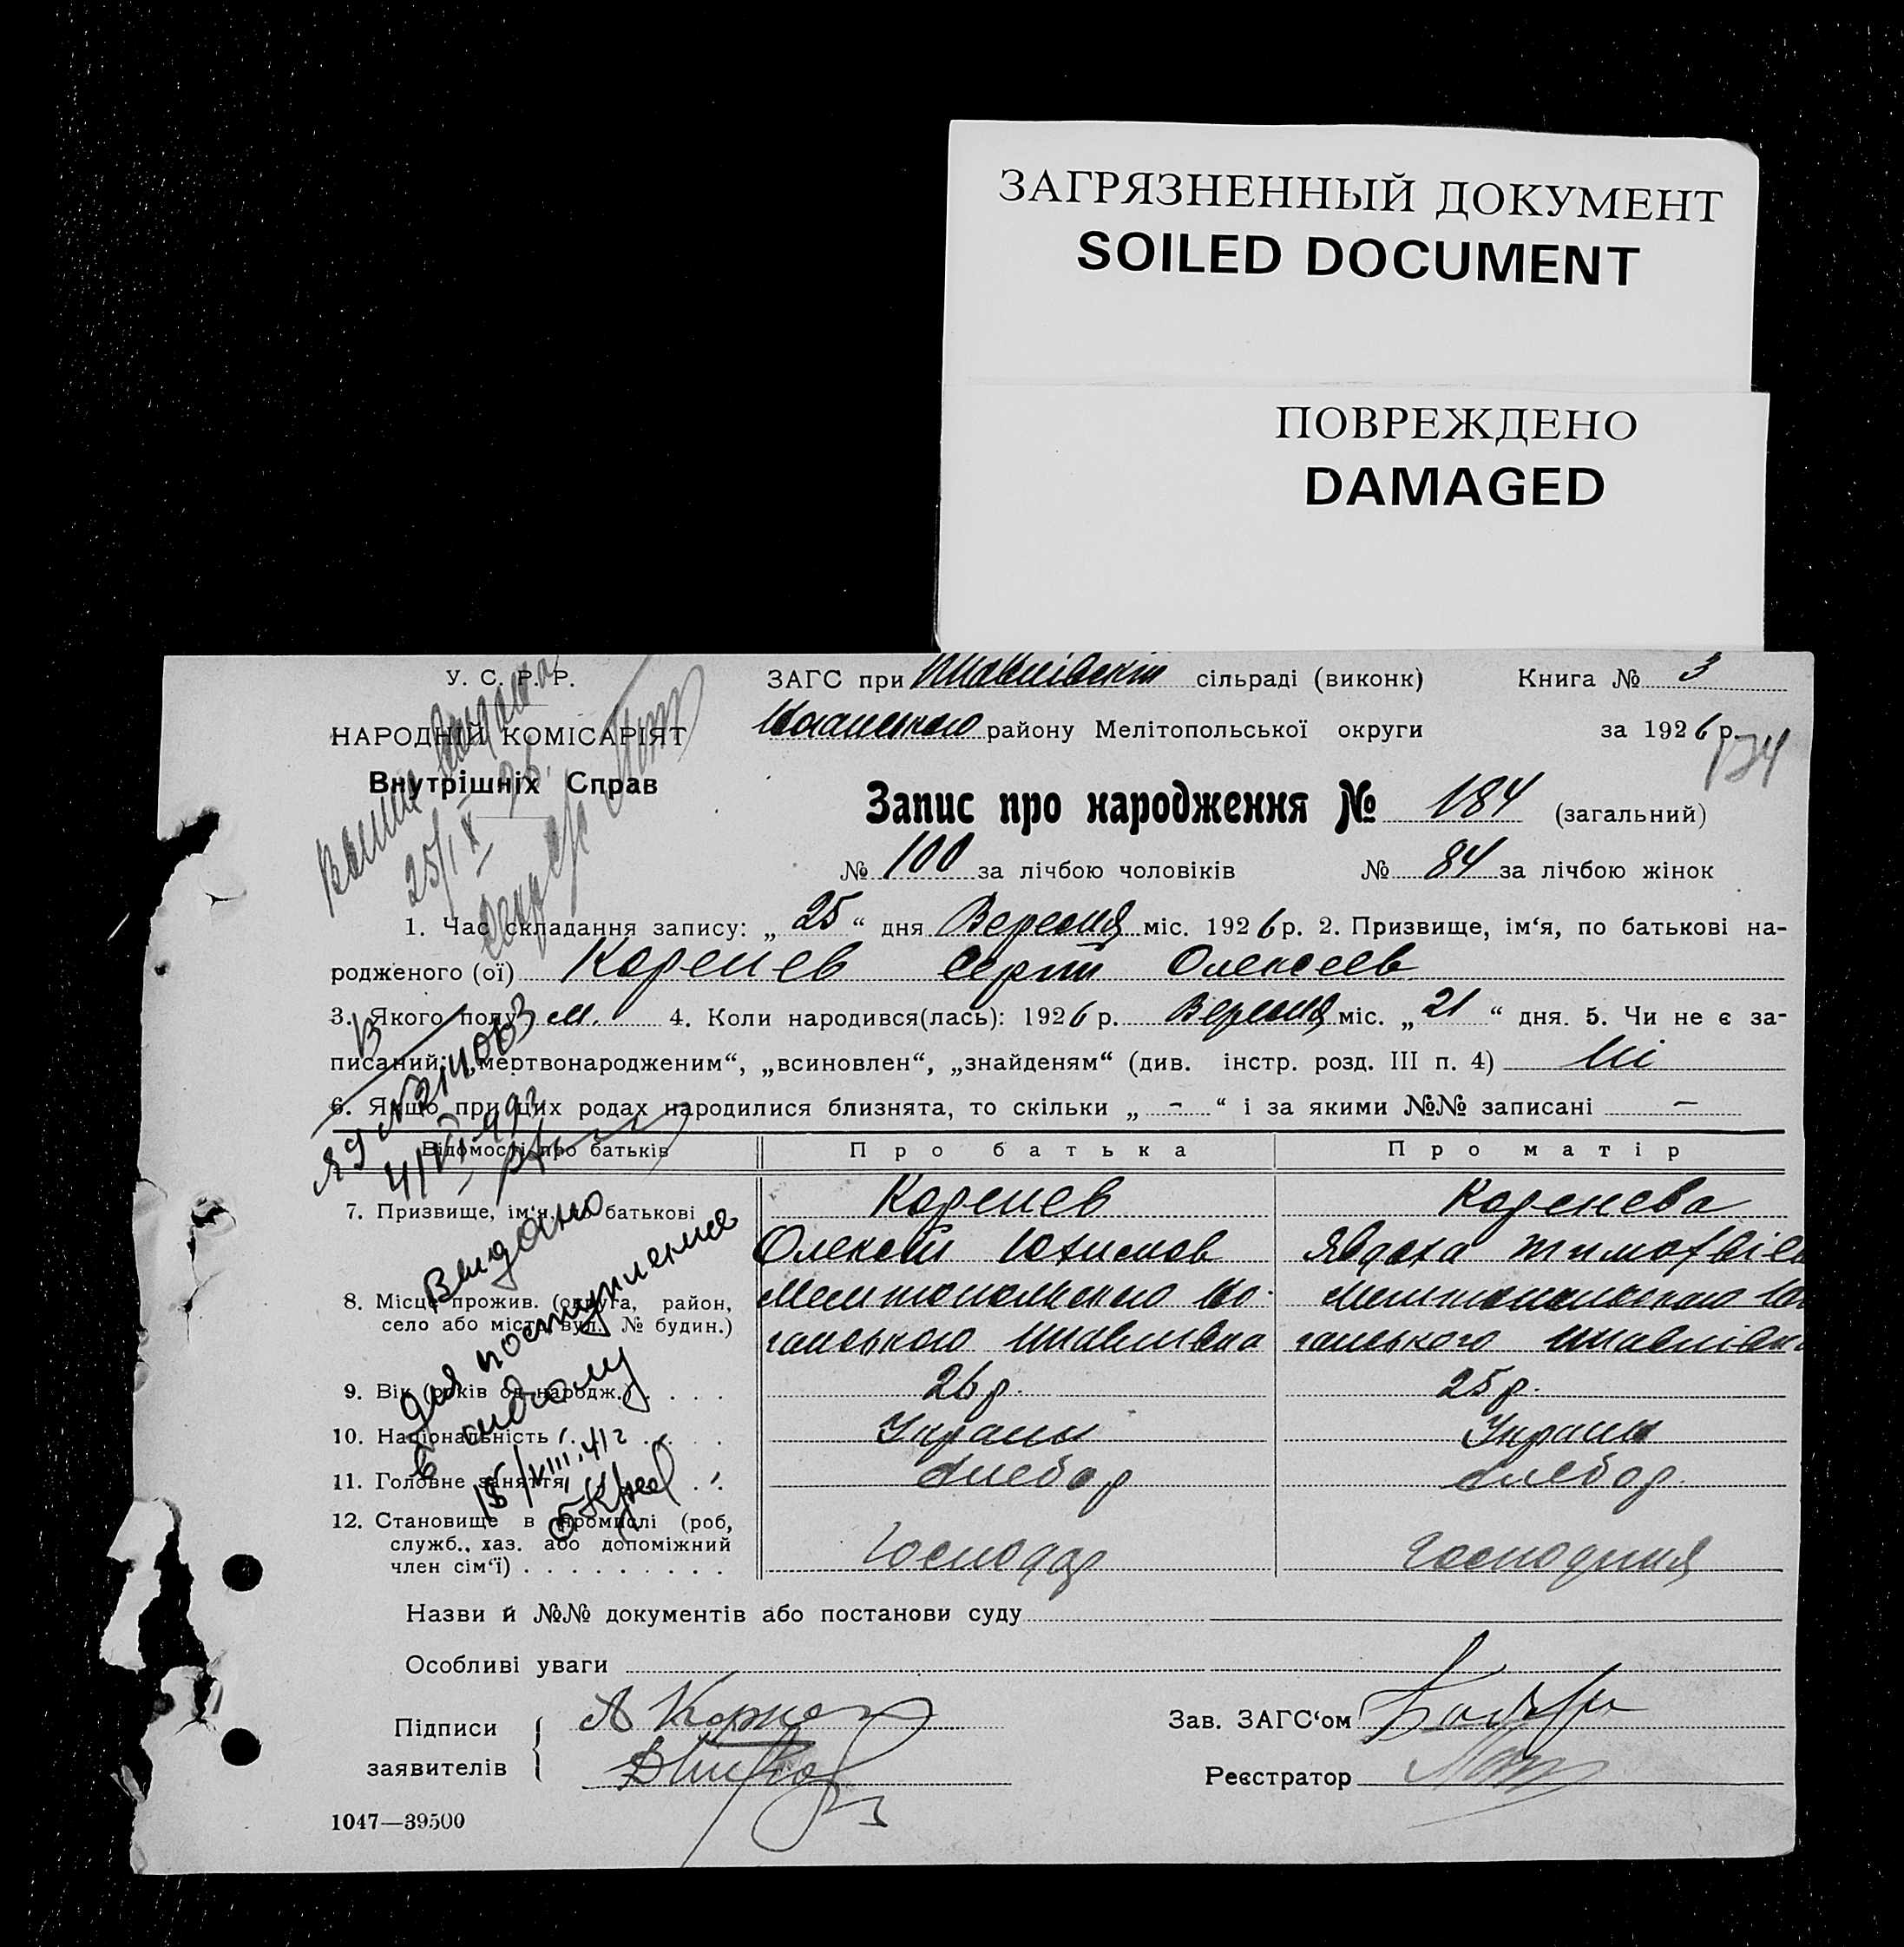 ЗАГРЯЗНЕННЫЙ ДОКУМЕНТ
SOILED DOCUMENT
ПОВРЕЖДЕНО
DAMAGED
У. С. Р. Р.
НАРОДНІЙ КОМІСАРІЯТ
Внутрішніх Справ
ЗАГС при сільраді (виконк) Книга № 3
району Мелітопольської округи за 1926 р.
Запис про народження № 184 (загальний)
№ 100 за лічбою чоловіків № 84 за лічбою жінок
25/IX 26.
1. Час складання запису: „ 25 “ дня Вересня міс. 1926 р. 2. Призвище, ім‘я, по батькові на-
родженого (ої) Коренев Сергій Олексеев
3. Якого полу м. 4. Коли народився(лась): 1926 р. Вересня міс. „ 21 “ дня. 5. Чи не є за-
писаний: „мертвонародженим“, „всиновлен“, „знайденям“ (див. інстр. розд. III п. 4) Ні
6. Якщо при цих родах народилися близнята, то скільки „ - “ і за якими №№ записані —
Відомості про батьків Про батька Про матір
7. Призвище, ім‘я, по батькові Коренев Коренева
Олексій Юхимов Явдоха
8. Місце прожив. (округа, район,
село або місто, вул. № будин.)
9. Вік (років од народж.) . . . . 26 р. 25 р.
10. Національність . . . . Украины Украины
11. Головне заняття . . . Хлебор Хлебор.
12. Становище в промислі (роб,
служб., хаз. або допоміжний
член сім‘ї) . . . . . . . . . Господар Господиня
Видано
для поступления
в школу
15/VIII.41 г
Назви й №№ документів або постанови суду
Особливі уваги
Підписи
заявителів
Зав. ЗАГС‘ом
Реєстратор
1047—39500